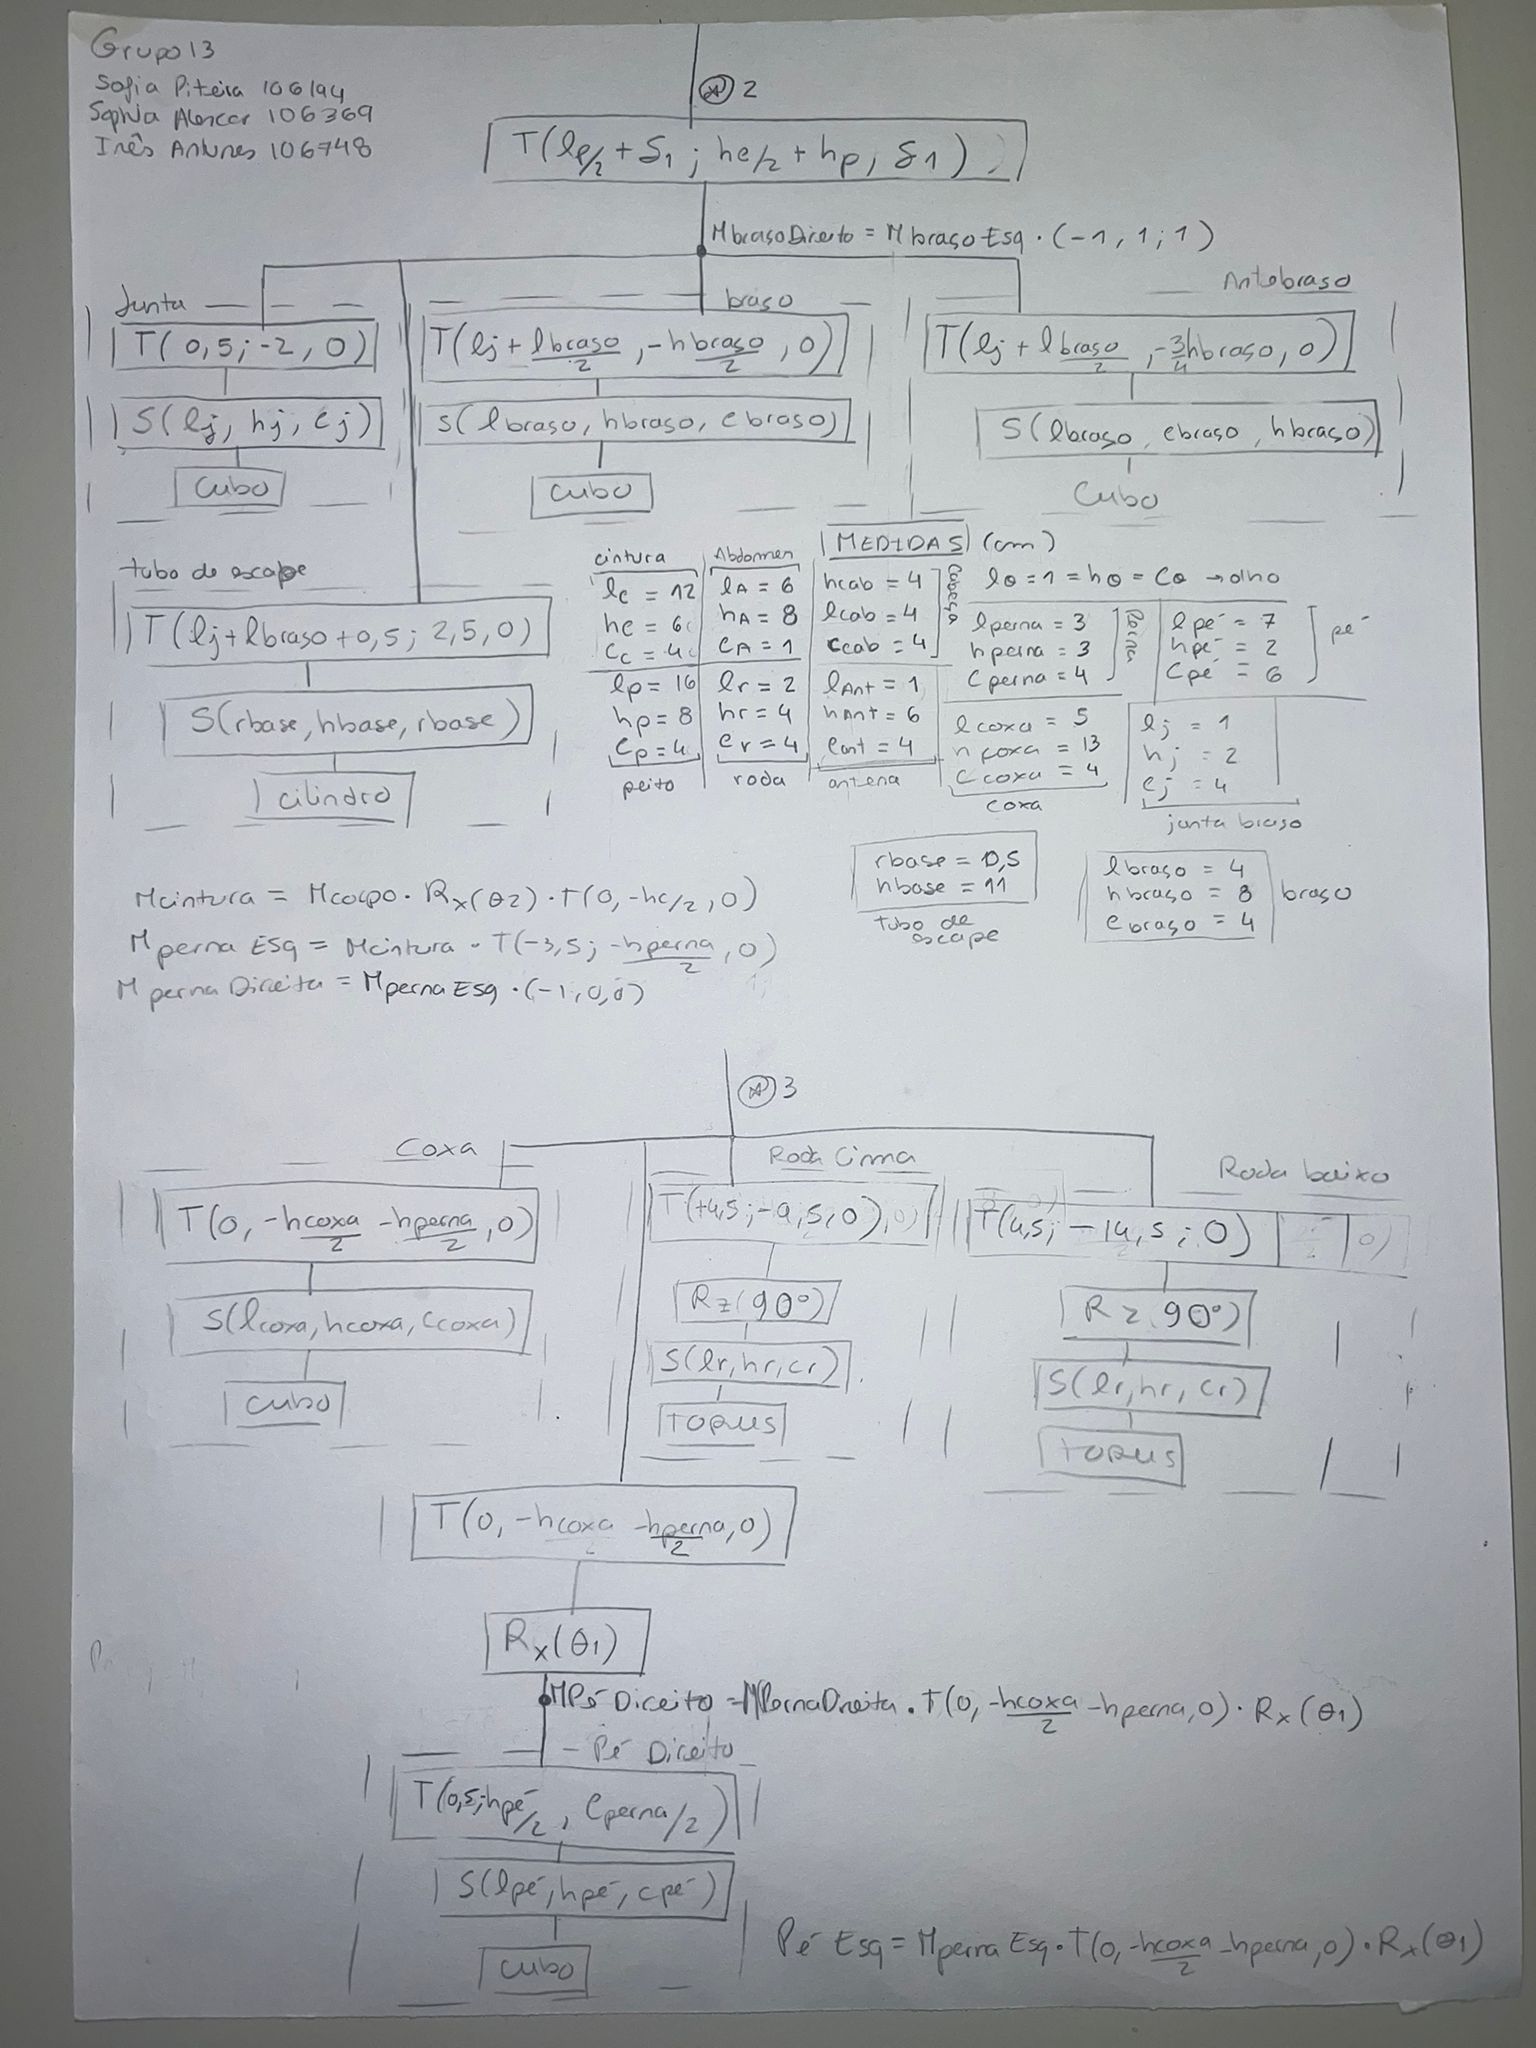 Grupo 13
Sofia Piteira 106194
Sophia Alencar 106369
Inês Antunes 106748
A 2
T(lp/2 + δ1 ; hc/2 + hp, δ1)
MbrasoDireito = MbrasoEsq · (-1, 1; 1)
Junta
T(0,5; -2, 0)
S(lj, hj, cj)
Cubo
braso
T(lj + lbraso/2, -hbraso/2, 0)
S(lbraso, hbraso, cbraso)
Cubo
Antebraso
T(lj + lbraso/2, -3/4hbraso, 0)
S(lbraso, cbraso, hbraso)
Cubo
tubo de escape
T(lj + lbraso + 0,5; 2,5, 0)
S(rbase, hbase, rbase)
cilindro
MEDIDAS (cm)
cintura
lc = 12
hc = 6
cc = 4
Abdomen
lA = 6
hA = 8
cA = 1
hcab = 4
lcab = 4
ccab = 4
Cabeça
lo = 1 = ho = co → olho
lperna = 3
hperna = 3
cperna = 4
Perna
lpé = 7
hpé = 2
cpé = 6
pé
lp = 16
hp = 8
cp = 4
peito
lr = 2
hr = 4
cr = 4
roda
lAnt = 1
hAnt = 6
cant = 4
antena
lcoxa = 5
hcoxa = 13
ccoxa = 4
coxa
lj = 1
hj = 2
cj = 4
junta braso
rbase = 0,5
hbase = 11
tubo de
escape
lbraso = 4
hbraso = 8
cbraso = 4
braso
Mcintura = Mcorpo · Rx(θ2) · T(0, -hc/2, 0)
Mperna Esq = Mcintura · T(-3,5; -hperna/2, 0)
MpernaDireita = MpernaEsq · (-1, 0, 0)
A 3
Coxa
T(0, -hcoxa/2 -hperna/2, 0)
S(lcoxa, hcoxa, ccoxa)
Cubo
Roda Cima
T(+4,5; -9,5, 0)
Rz(90°)
S(lr, hr, cr)
TORUS
Roda baixo
T(4,5; -14,5; 0)
Rz 90°)
S(lr, hr, cr)
TORUS
T(0, -hcoxa/2 -hperna/2, 0)
Rx(θ1)
MPé Direito = MPernaDireita · T(0, -hcoxa/2 -hperna, 0) · Rx(θ1)
Pé Direito
T(0,5; -hpé/2, cperna/2)
S(lpé, hpé, cpé)
Cubo
Pé Esq = Mperna Esq · T(0, -hcoxa/2 -hperna, 0) · Rx(θ1)